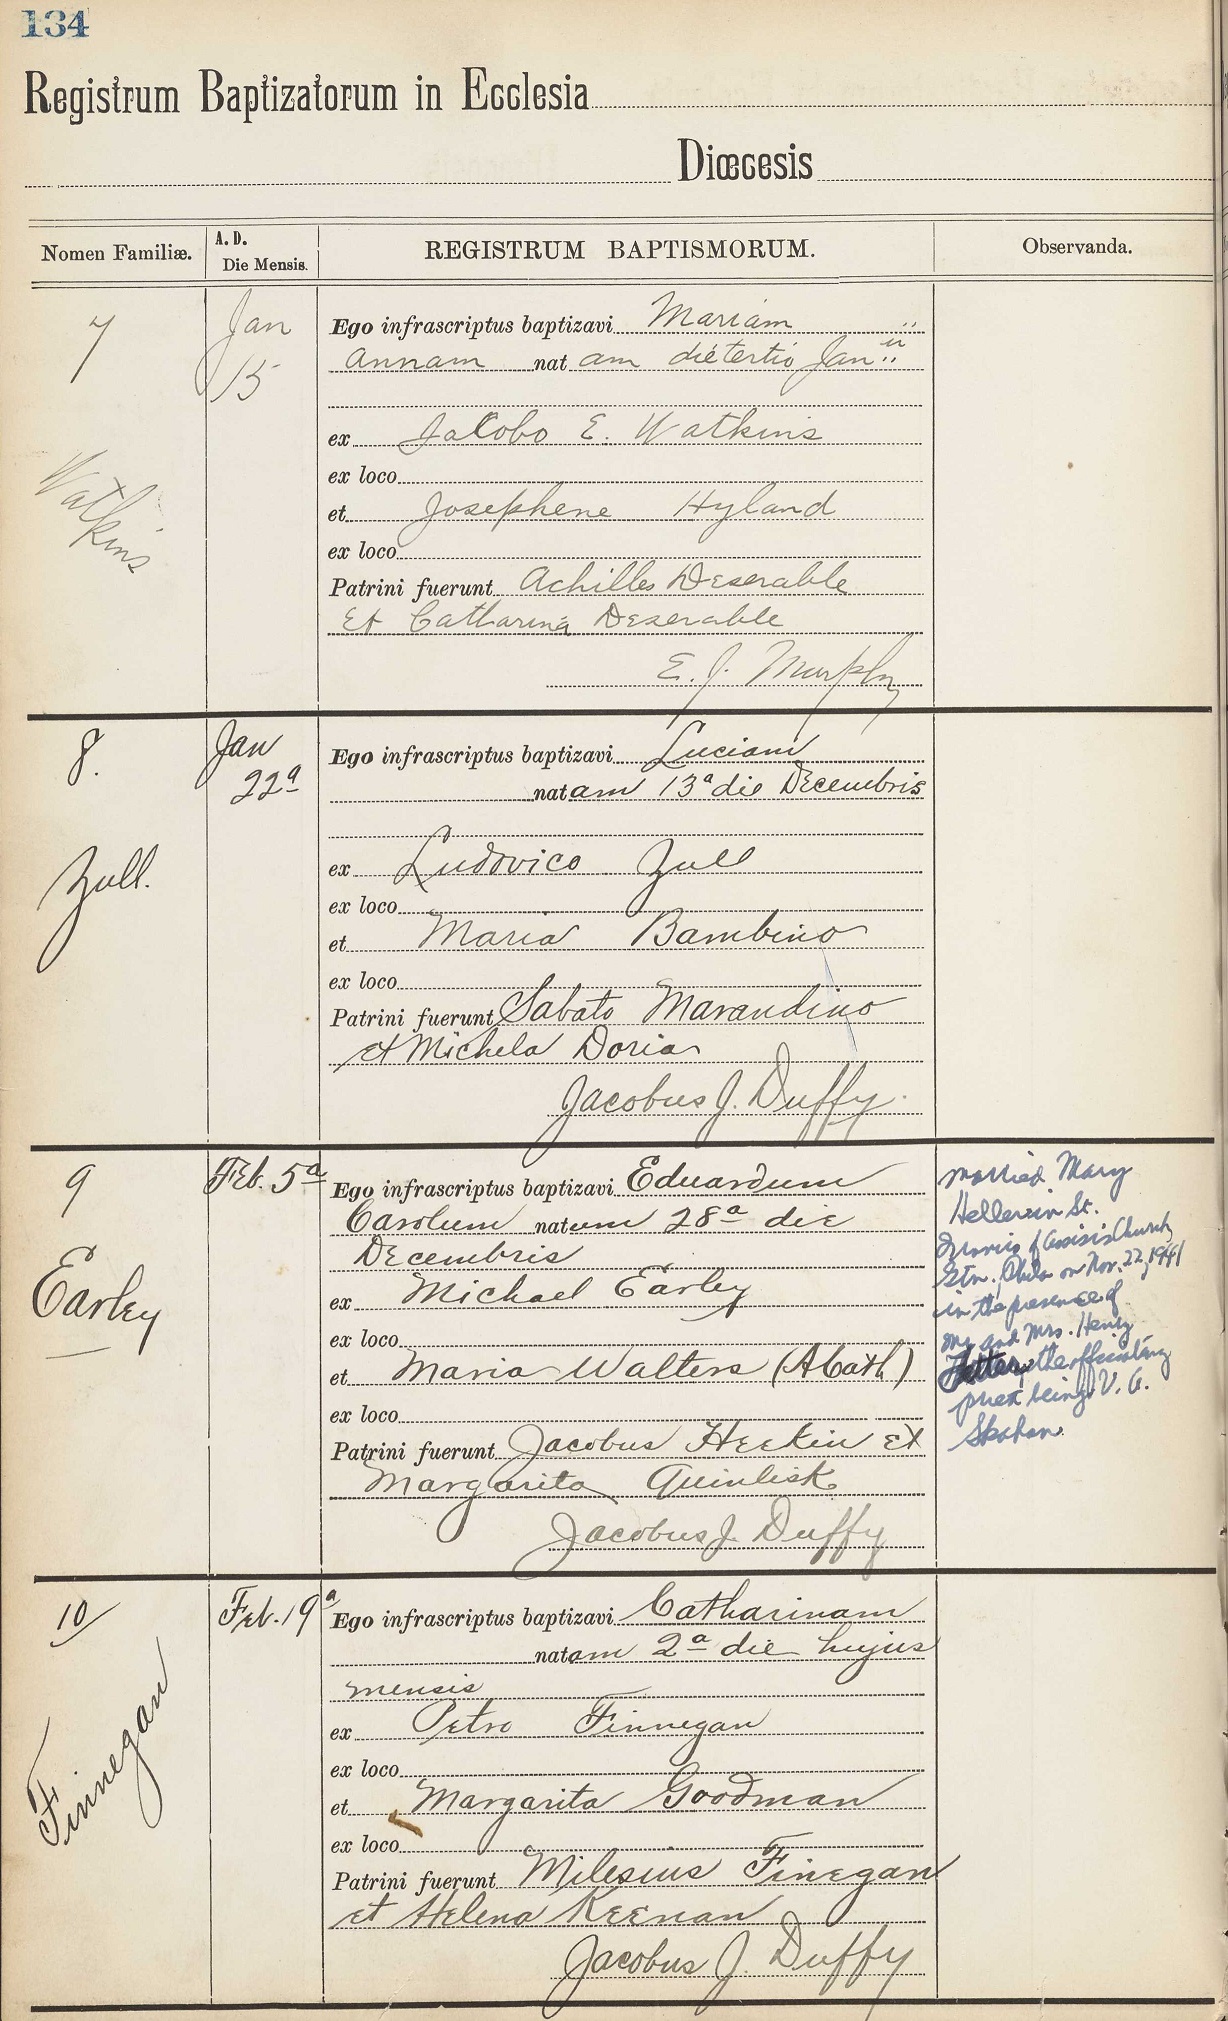 134
Registrum Baptizatorum in Ecclesia
Diœcesis
Nomen Familiæ.
A. D.
Die Mensis.
REGISTRUM BAPTISMORUM.
Observanda.
7
Jan
15
Watkins
Ego infrascriptus baptizavi Mariam
Annam natam die tertio Jan
ex Jacobo E. Watkins
ex loco
et Josephene Hyland
ex loco
Patrini fuerunt Achilles Deserable
Et Catharina Deserable
E. J. Murphy
8.
Jan
22a
Zull.
Ego infrascriptus baptizavi Luciam
natam 13a die Decembris
ex Ludovico Zull
ex loco
et Maria Bambino
ex loco
Patrini fuerunt Sabato Marandino
et Michela Doria
Jacobus J. Duffy.
9
Feb. 5a
Earley
Ego infrascriptus baptizavi Eduardum
Carolum natum 28a die
Decembris
ex Michael Earley
ex loco
et Maria Walters (Acath)
ex loco
Patrini fuerunt Jacobus Heskin et
Margarita Quinlisk
Jacobus J. Duffy
married Mary
in St.
Francis of Assisi Church
Gtn., Phila on Nov. 22, 1941
in the presence of
Mr. and Mrs. Henry
the officiating
priest being V. G.
Skahan.
10
Feb. 19a
Finnegan
Ego infrascriptus baptizavi Catharinam
natam 2a die hujus
mensis
ex Petro Finnegan
ex loco
et Margarita Goodman
ex loco
Patrini fuerunt Milesius Finegan
et Helena Keenan
Jacobus J. Duffy